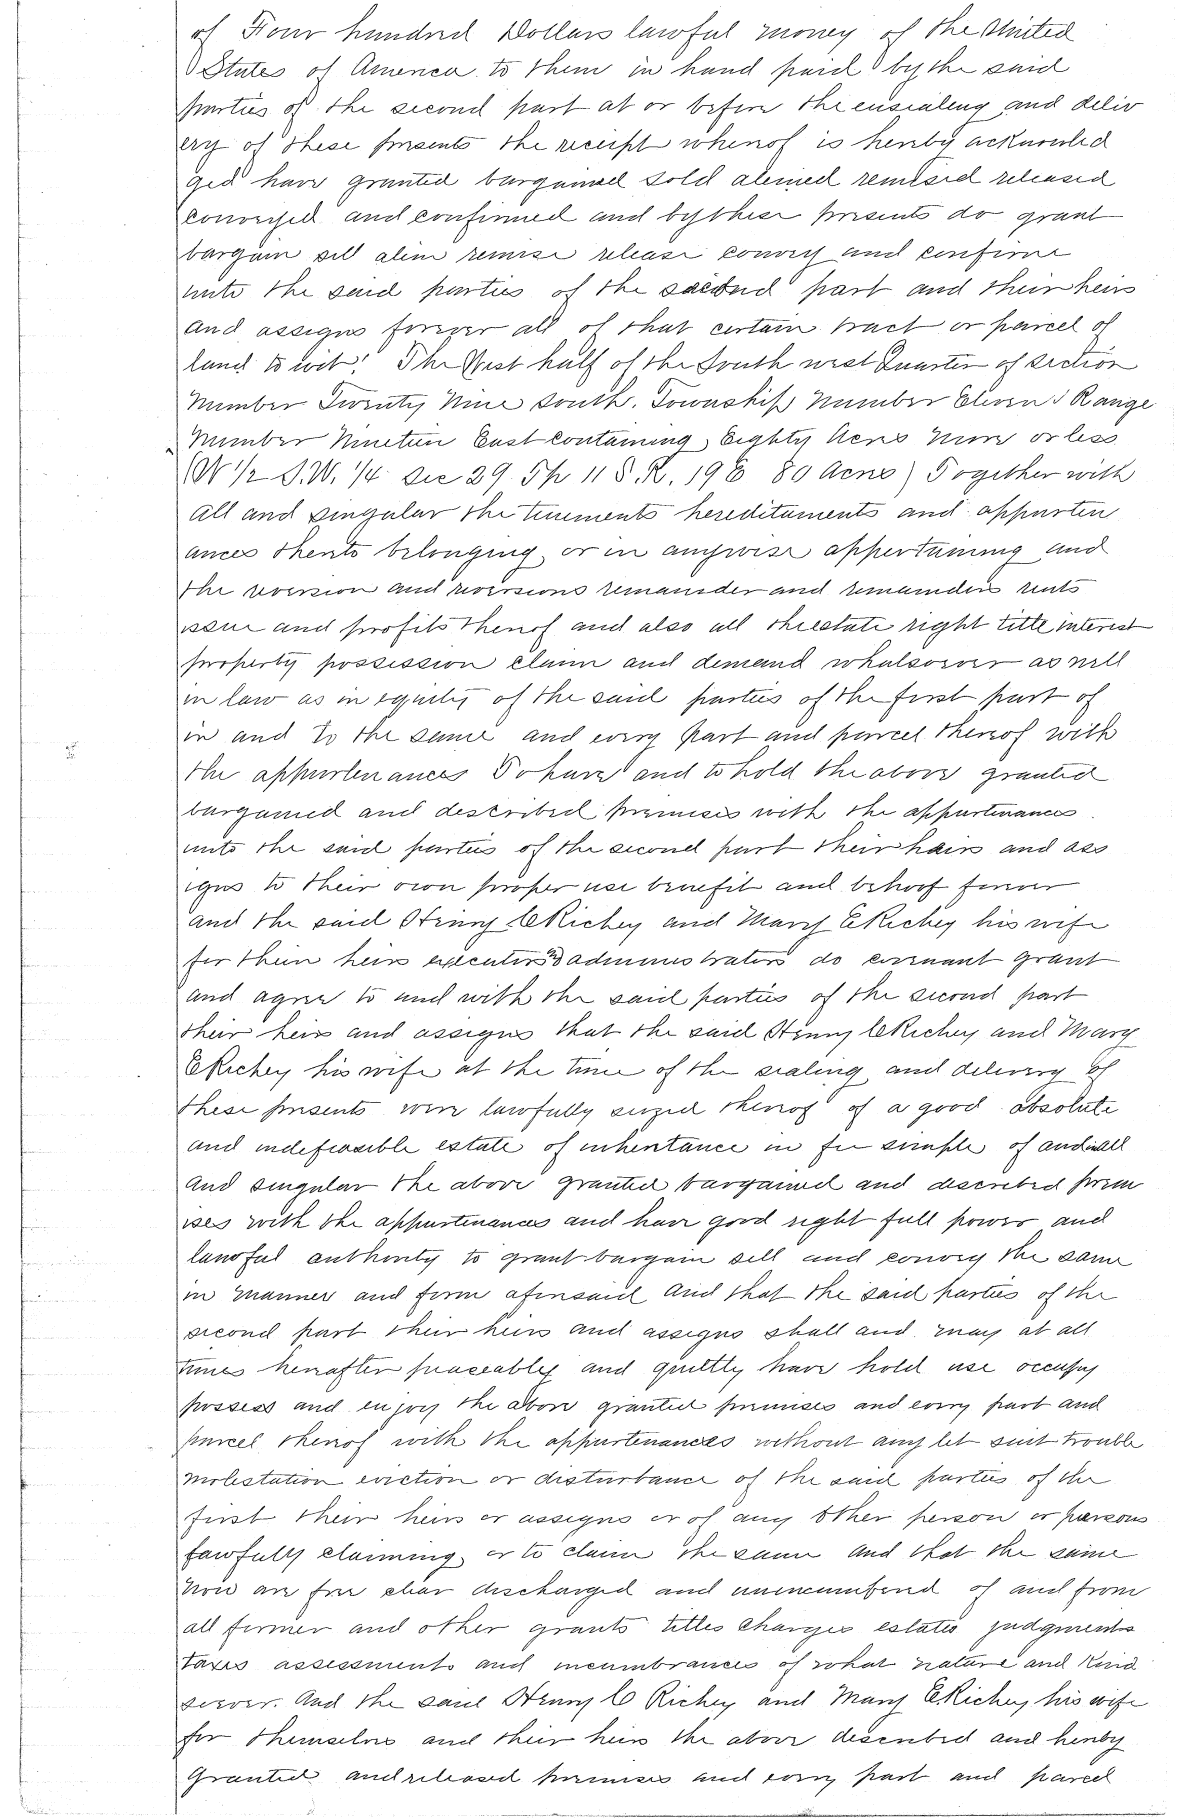 of Four hundred Dollars lawful money of the United
States of America to them in hand paid by the said
parties of the second part at or before the ensealing and deliv
ery of these presents the receipt whereof is hereby acknowled
ged have granted bargained sold aliened remised released
conveyed and confirmed and by these presents do grant
bargain sell alien remise release convey and confirm
unto the said parties of the second part and their heirs
and assigns forever all of that certain tract or parcel of
land to wit: The West half of the South west Quarter of section
Number Twenty Nine south. Township Number Eleven S Range
Number Nineteen East containing Eighty Acres more or less
(W 1/2 S.W. 1/4 Sec 29 Tp 11 S.R. 19 E 80 Acres) Together with
all and singular the tenements hereditaments and appurten
ances thereto belonging or in anywise appertaining and
the reversion and reversions remainder and remainders rents
issue and profits thereof and also all the estate right title interest
property possession claim and demand whatsoever as well
in law as in equity of the said parties of the first part of
in and to the same and every part and parcel thereof with
the appurtenances To have and to hold the above granted
bargained and described premises with the appurtenances
unto the said parties of the second part their heirs and ass
igns to their own proper use benefit and behoof forever
and the said Henry C Richey and Mary E Richey his wife
for their heirs executors & administrators do covenant grant
and agree to and with the said parties of the second part
their heirs and assigns that the said Henry C Richey and Mary
E Richey his wife at the time of the sealing and delivery of
these presents were lawfully seized thereof of a good absolute
and indefeasible estate of inheritance in fee simple of and in all
and singular the above granted bargained and described prem
ises with the appurtenances and have good right full power and
lawful authority to grant bargain sell and convey the same
in manner and form aforesaid And that the said parties of the
second part their heirs and assigns shall and may at all
times hereafter peaceably and quietly have hold use occupy
possess and enjoy the above granted premises and every part and
parcel thereof with the appurtenances without any let suit trouble
molestation eviction or disturbance of the said parties of the
first their heirs or assigns or of any other person or persons
lawfully claiming or to claim the same and that the same
now are free clear discharged and unencumbered of and from
all former and other grants titles charges estates judgments
taxes assessments and incumbrances of what nature and kind
soever. And the said Henry C Richey and Mary E Richey his wife
for themselves and their heirs the above described and hereby
Granted and released premises and every part and parcel